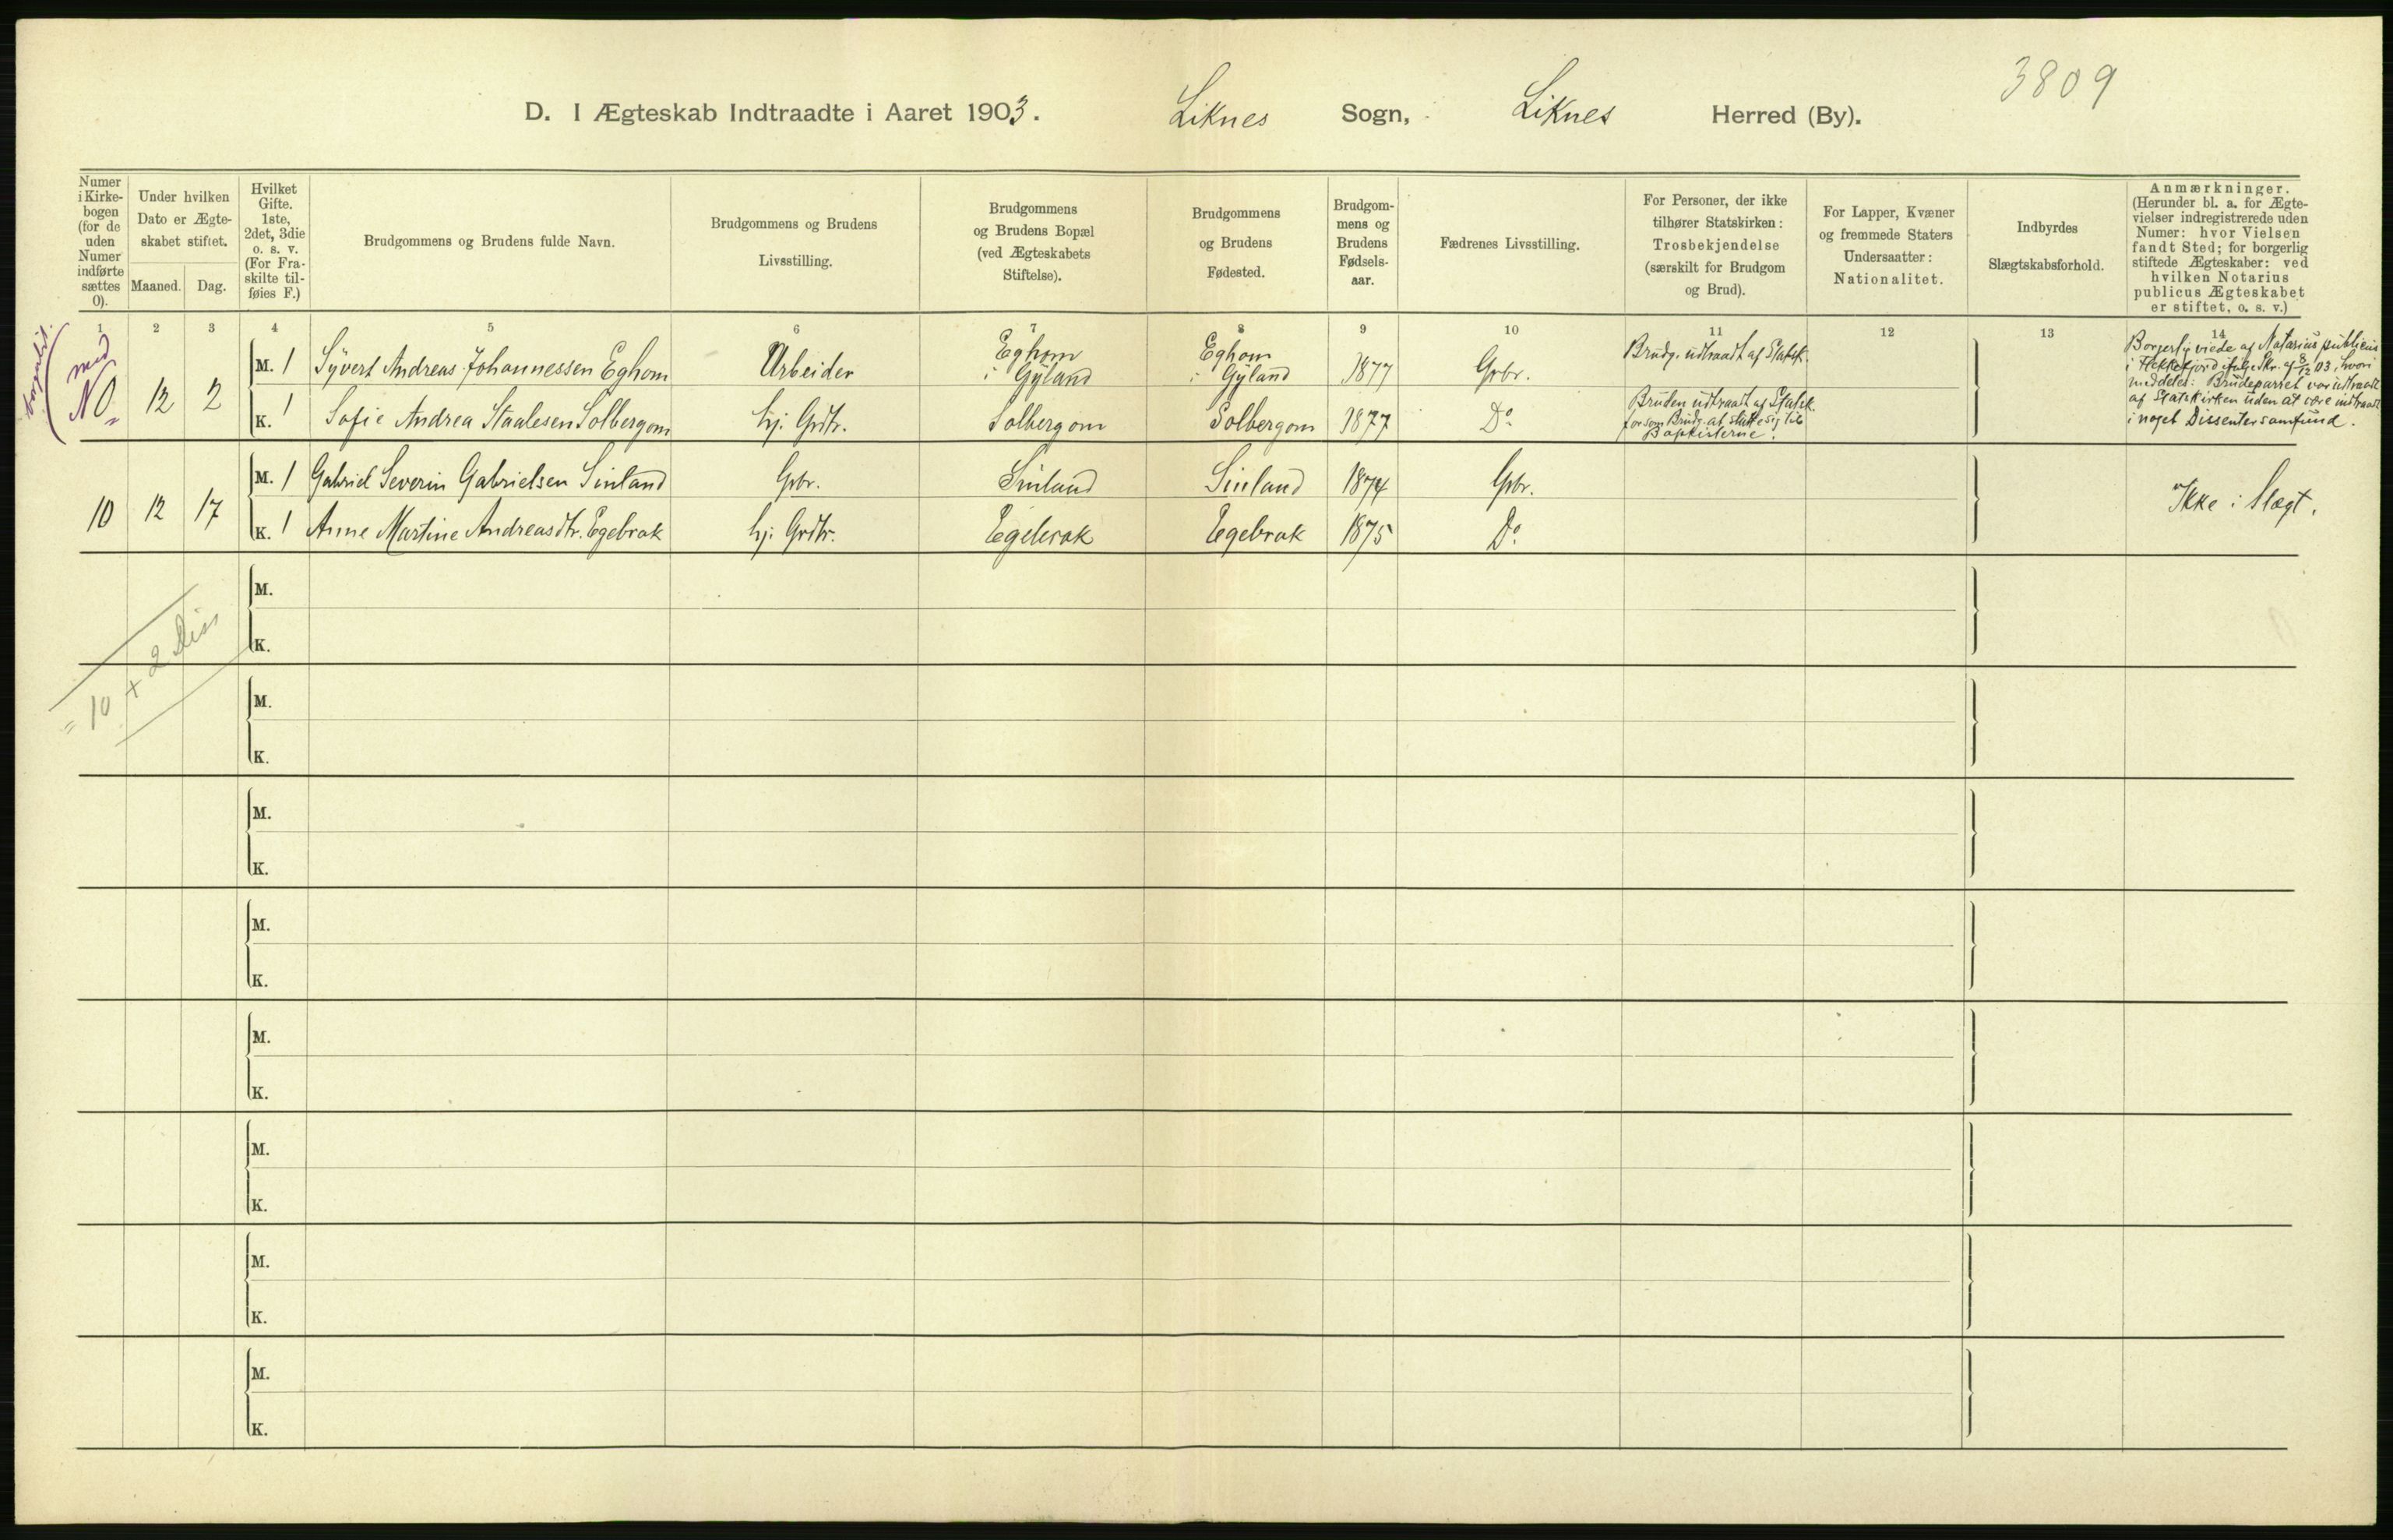 3809
D. I Ægteskab Indtraadte i Aaret 1903. Liknes Sogn, Liknes Herred (By).
Numer i Kirkebogen (for de uden Numer indførte sættes 0).
Under hvilken Dato er Ægteskabet stiftet.
Maaned. Dag.
Hvilket Gifte. 1ste, 2det, 3die o. s. v. (For Fraskilte tilføies F.)
Brudgommens og Brudens fulde Navn.
Brudgommens og Brudens Livsstilling.
Brudgommens og Brudens Bopæl (ved Ægteskabets Stiftelse).
Brudgommens og Brudens Fødested.
Brudgommens og Brudens Fødselsaar.
Fædrenes Livsstilling.
For Personer, der ikke tilhører Statskirken: Trosbekjendelse (særskilt for Brudgom og Brud).
For Lapper, Kvæner og fremmede Staters Undersaatter: Nationalitet.
Indbyrdes Slægtskabsforhold.
Anmærkninger. (Herunder bl. a. for Ægtevielser indregistrerede uden Numer: hvor Vielsen fandt Sted; for borgerlig stiftede Ægteskaber: ved hvilken Notarius publicus Ægteskabet er stiftet, o. s. v.)
1 2 3 4 5 6 7 8 9 10 11 12 13 14
borgerlit.
med
N0 12 2
M. 1 Syvert Andreas Johannessen Eghom Arbeider Eghom i Gyland Eghom i Gyland 1877 Grbr. Brudg. udtraadt af Statsk.
K. 1 Sofie Andrea Staalesen Solbergom hj. Grdtr. Solbergom Solbergom 1877 Do Bruden udtraadt af Statsk.
for som Brudg. at slutte sig til
Baptisterne.
Borgerlig viede af Notarius publicus
i Flekkefjord ifølge Skr. af 8/12 03, hvori
meddeles: Brudeparret var udtraadt
af Statskirken uden at være indtraadt
i noget Dissentersamfund.
10 12 17
M. 1 Gabriel Severin Gabrielsen Sinland Grbr. Sinland Sinland 1874 Grbr.
K. 1 Anne Martine Andreasdtr. Egebrok hj. Grdtr. Egebrok Egebrok 1875 Do
Ikke i Slægt.
M.
K.
= 10 + 2 Diss
M.
K.
M.
K.
M.
K.
M.
K.
M.
K.
M.
K.
M.
K.